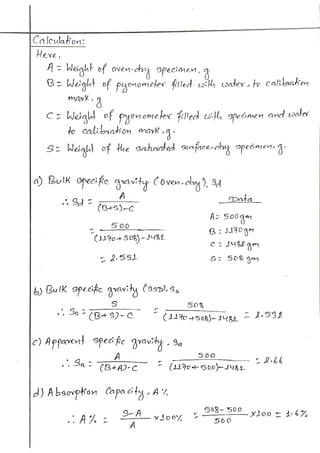 Calculation:
Here,
A = Weight of oven-dry specimen, g
B = Weight of pycnometer filled with water, to calibration
mark, g
C = Weight of pycnometer filled with specimen and water
to calibration mark, g.
S = Weight of the saturated surface-dry specimen, g.
a) Bulk specific gravity (oven-dry), Sd
∴ Sd = A / (B+S)-C
= 500 / (1170+508)-1482
= 2.551
Data
A = 500gm
B : 1170gm
C : 1482gm
S : 508gm
b) Bulk specific gravity (SSD), Ss
∴ Ss = S / (B+S)-C = 508 / (1170+508)-1482 = 2.592
c) Apparent specific gravity, Sa
∴ Sa = A / (B+A)-C = 500 / (1170+500)-1482 = 2.66
d) Absorption Capacity, A%
∴ A% = S-A / A x100% = 508-500 / 500 x100 = 1.6%